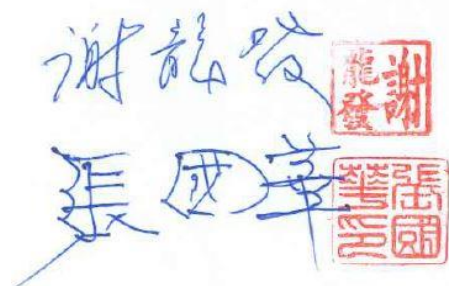 謝龍發
謝龍發
張國華
張國華印